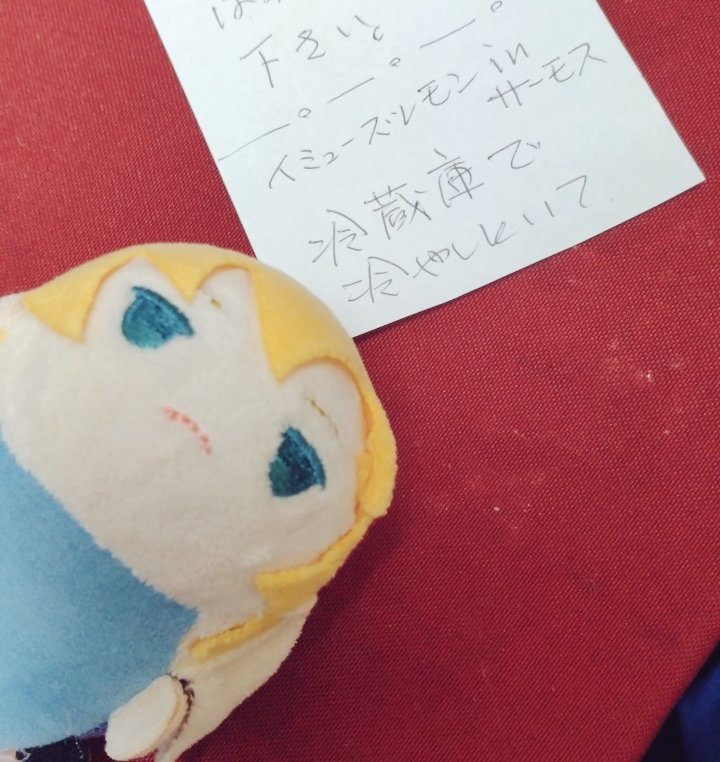 下さい。
—。—。—。
イミューズレモン in
サーモス
冷蔵庫で
冷やしといて